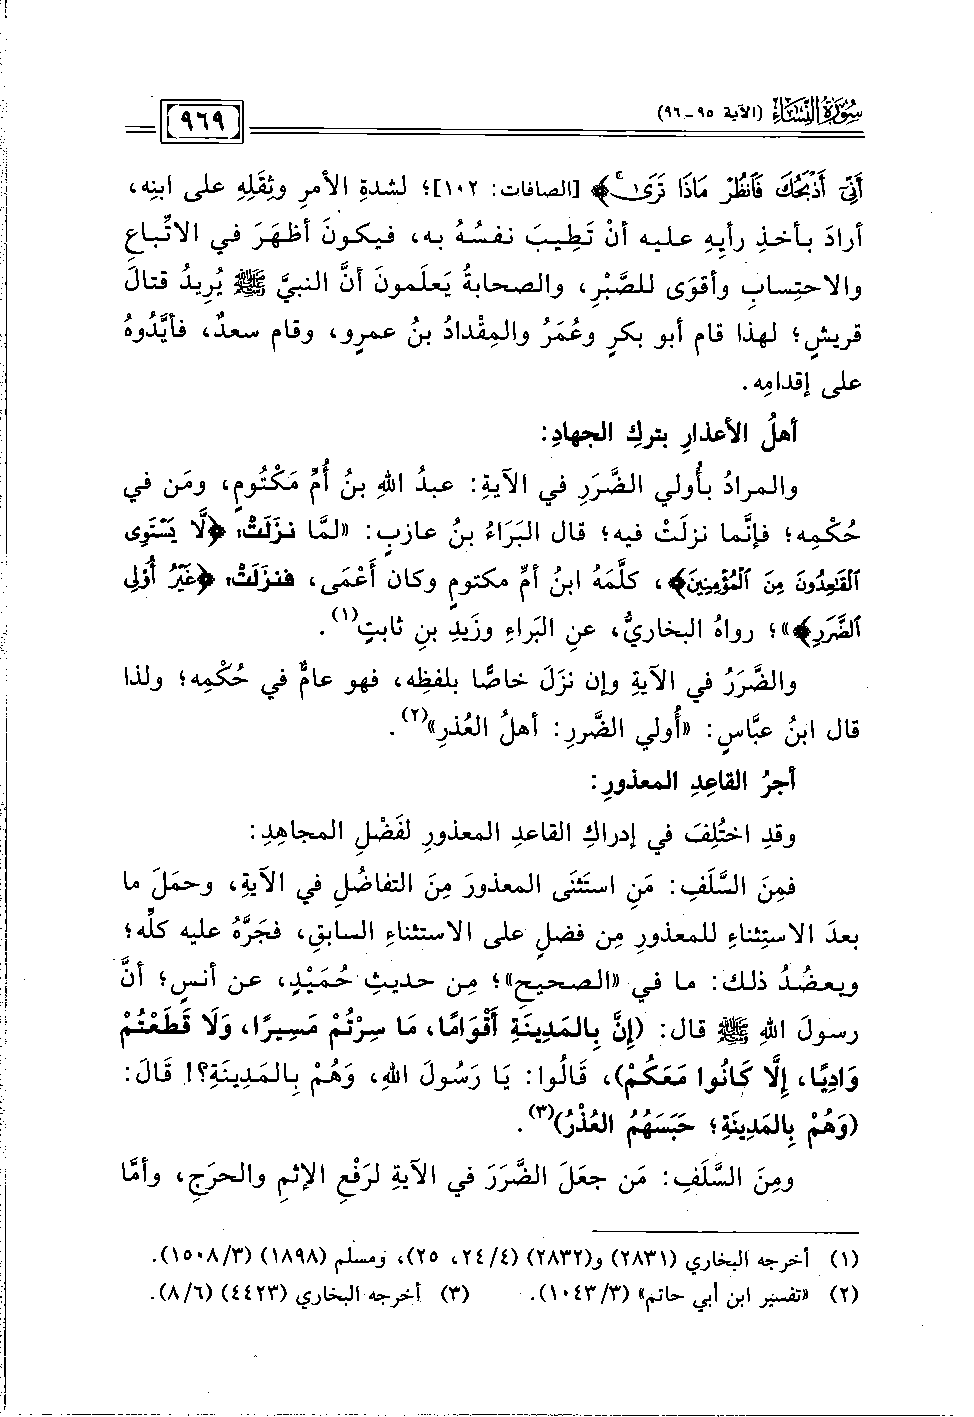 سُورَةُ النِّسَاءِ (الآية ٩٥ ـ ٩٦)
٩٦٩
أَنِّي أَذْبَحُكَ فَانظُرْ مَاذَا تَرَىٰ﴾ [الصافات: ١٠٢]؛ لشدةِ الأمرِ وثِقَلِهِ على ابنِه،
أرادَ بأخذِ رأيِهِ عليه أنْ تَطِيبَ نفسُهُ به، فيكونَ أظهَرَ في الاتِّباعِ
والاحتِسابِ وأقوَى للصَّبْرِ، والصحابةُ يَعلَمونَ أنَّ النبيَّ ﷺ يُرِيدُ قتالَ
قريشٍ؛ لهذا قام أبو بكرٍ وعُمَرُ والمِقْدادُ بنُ عمرٍو، وقام سعدٌ، فأيَّدُوهُ
على إقدامِه.
أهلُ الأعذارِ بتركِ الجهادِ:
والمرادُ بأُولي الضَّرَرِ في الآيةِ: عبدُ اللهِ بنُ أُمِّ مَكْتُومٍ، ومَن في
حُكْمِه؛ فإنَّما نزلَتْ فيه؛ قال البَرَاءُ بنُ عازبٍ: «لمَّا نزلَتْ: ﴿لَّا يَسْتَوِي
الْقَاعِدُونَ مِنَ الْمُؤْمِنِينَ﴾، كلَّمَهُ ابنُ أمِّ مكتومٍ وكان أَعْمَى، فنزلَتْ: ﴿غَيْرُ أُوْلِي
الضَّرَرِ﴾»؛ رواهُ البخاريُّ، عنِ البَراءِ وزَيدِ بنِ ثابتٍ(١).
والضَّرَرُ في الآيةِ وإن نزَلَ خاصًّا بلفظِه، فهو عامٌّ في حُكْمِه؛ ولذا
قال ابنُ عبَّاسٍ: «أُولي الضَّررِ: أهلُ العُذرِ»(٢).
أجرُ القاعِدِ المعذورِ:
وقدِ اختُلِفَ في إدراكِ القاعدِ المعذورِ لفَضْلِ المجاهِدِ:
فمِنَ السَّلَفِ: مَنِ استَثنَى المعذورَ مِنَ التفاضُلِ في الآيةِ، وحمَلَ ما
بعدَ الاستِثناءِ للمعذورِ مِن فضلٍ على الاستثناءِ السابقِ، فجَرَّهُ عليه كلَّه؛
ويعضُدُ ذلك: ما في «الصحيحِ»؛ مِن حديثِ حُمَيْدٍ، عن أنسٍ؛ أنَّ
رسولَ اللهِ ﷺ قال: (إِنَّ بِالمَدِينَةِ أَقْوَامًا، مَا سِرْتُمْ مَسِيرًا، وَلَا قَطَعْتُمْ
وَادِيًا، إِلَّا كَانُوا مَعَكُمْ)، قَالُوا: يَا رَسُولَ اللهِ، وَهُمْ بِالمَدِينَةِ؟! قَالَ:
(وَهُمْ بِالمَدِينَةِ؛ حَبَسَهُمُ العُذْرُ)(٣).
ومِنَ السَّلَفِ: مَن جعَلَ الضَّرَرَ في الآيةِ لرَفْعِ الإثمِ والحرَجِ، وأمَّا
(١) أخرجه البخاري (٢٨٣١) و(٢٨٣٢) (٤/ ٢٤، ٢٥)، ومسلم (١٨٩٨) (٣/ ١٥٠٨).
(٢) «تفسير ابن أبي حاتم» (٣/ ١٠٤٣). (٣) أخرجه البخاري (٤٤٢٣) (٦/ ٨).